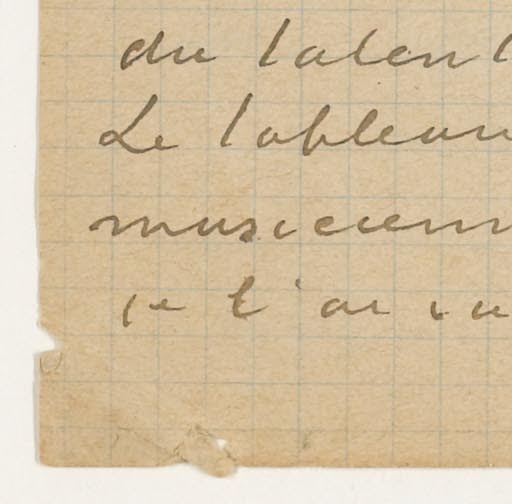 du talent
Le tableau
musicien
je l'ai vu